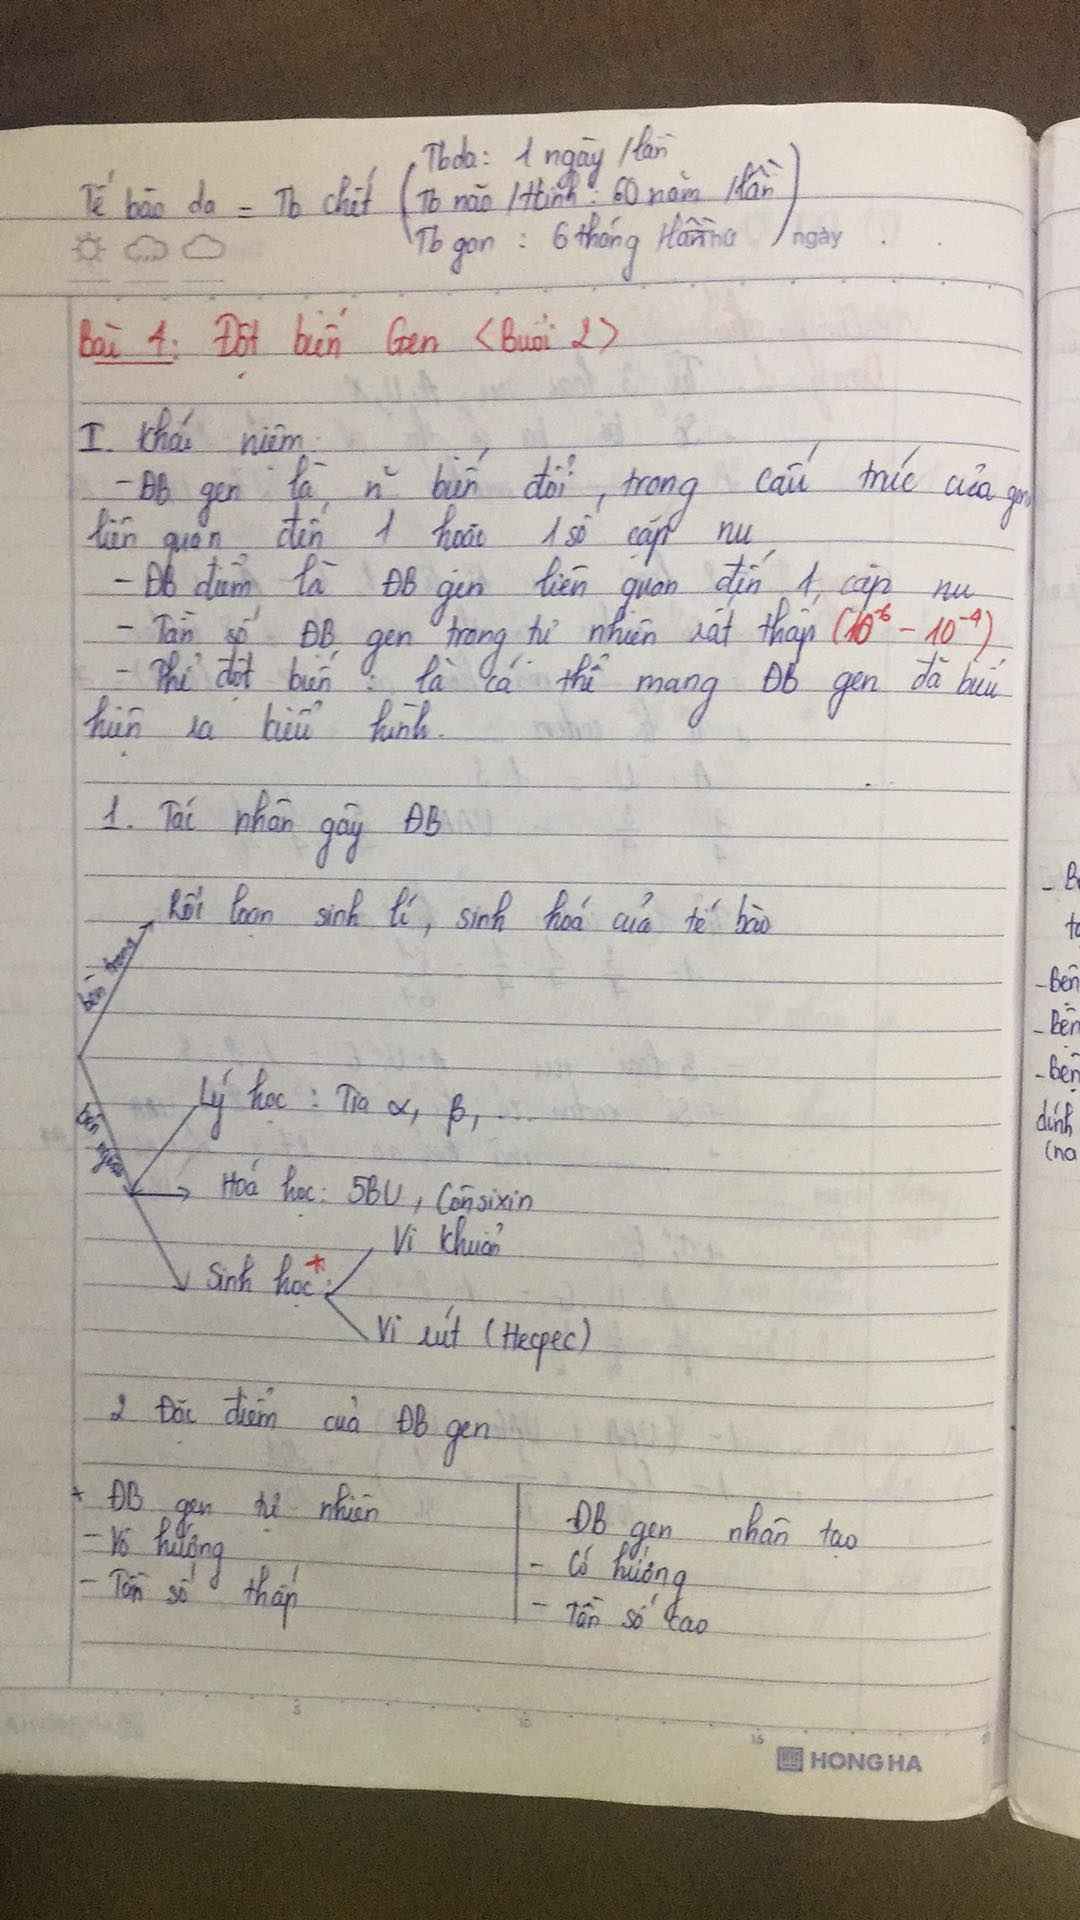 Tb da: 1 ngày / lần
Tế bào da = Tb chết
Tb não / tkinh: 60 năm / lần
Tb gan: 6 tháng / lần
ngày
Bài 4: Đột biến Gen <Buổi 2>
I. Khái niệm
- ĐB gen là n~ biến đổi, trong cấu trúc của gen
liên quan đến 1 hoặc 1 số cặp nu
- ĐB điểm là ĐB gen liên quan đến 1 cặp nu
- Tần số ĐB gen trong tự nhiên rất thấp (10⁻⁶ - 10⁻⁴)
- Thể đột biến: là cá thể mang ĐB gen đã biểu
hiện ra kiểu hình.
1. Tác nhân gây ĐB
Rối loạn sinh lí, sinh hoá của tế bào
bên trong
Lý học: Tia α, β, ...
bên ngoài
Hoá học: 5BU, Cônsixin
Vi khuẩn
Sinh học*:
Vi rút (Hecpec)
2 Đặc điểm của ĐB gen
+ ĐB gen tự nhiên
- Vô hướng
- Tần số thấp
ĐB gen nhân tạo
- Có hướng
- Tần số cao
5
10
15
HONG HA
- Bên
- Bên
- Bên
dính